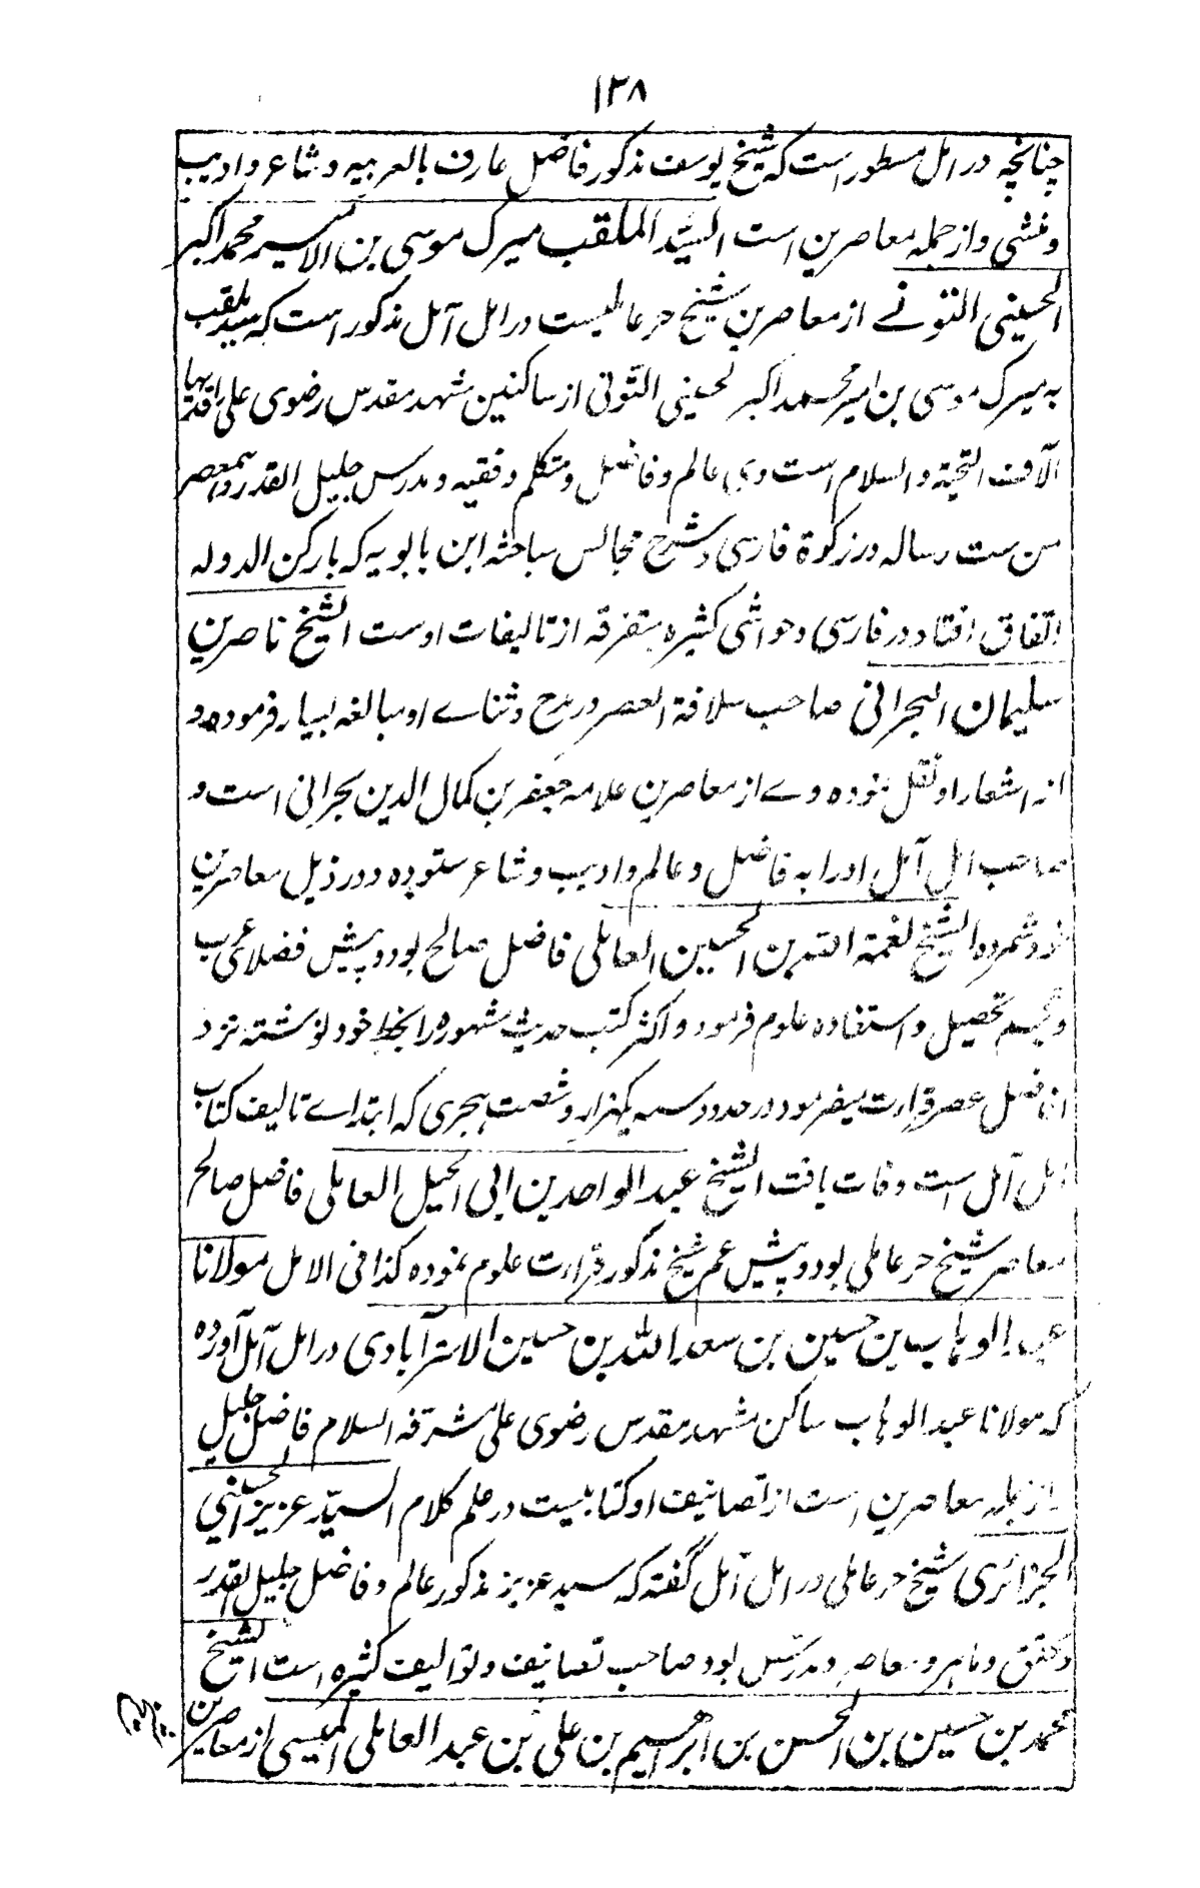 ۱۳۸
چنانچه در امل مسطور است که شیخ یوسف مذکور فاضل عارف بالعربیه و شاعر و ادیب
و منشی و از جمله معاصرین است السید الملقب میرک موسی بن الامیر محمد اکبر
الحسینی التونے از معاصرین شیخ حر عاملیست در امل آمل مذکور است که سید ملقب
به میرک موسی بن امیر محمد اکبر لحسینی التونی از ساکنین مشهد مقدس رضوی علی راقدیها
آلاف التحیة و السلام است وی عالم و فاضل و متکلم و فقیه و مدرس جلیل القدر و همعصر
من ست رساله در زکوة فارسی و شرح مجالس مباحثه ابن بابویه که بارکن الدوله
اتفاق افتاد در فارسی و حواشی کثیره متفرقه از تالیفات اوست الشیخ ناصر بن
سلیمان البحرانی صاحب سلافة العصر در مدح و ثناے او مبالغه بسیار فرموده و
اشعار او نقل نموده وے از معاصرین علامه جعفر بن کمال الدین بحرانی است و
صاحب امل آمل او را به فاضل و عالم و ادیب و شاعر ستوده و در ذیل معاصرین
خود شمرده الشیخ نعمة الله بن الحسین العاملی فاضل صالح بود و پیش فضلاے عرب
و عجم تحصیل و استفاده علوم فرمود و اکثر کتب حدیث مشهوره را بخط خود نوشته نزد
افاضل عصر قرارت میفرمود در حدود سنه یکهزار و شصت هجری که ابتداے تالیف کتاب
امل آمل است وفات یافت الشیخ عبد الواحد بن ابی الجیل العاملی فاضل صالح
معاصر شیخ حر عاملی بود و پیش عم شیخ مذکور قرارت علوم نموده کذا فی الامل مولانا
عبد الوهاب بن حسین بن سعد الله بن حسین الاسترآبادی در امل آمل آورده
که مولانا عبد الوهاب ساکن مشهد مقدس رضوی علی مشرفه السلام فاضل جلیل
از جمله معاصرین است از تصانیف او کتابیست در علم کلام السید عزیز الحسینی
الجزائری شیخ حر عاملی در امل آمل گفته که سید عزیز مذکور عالم و فاضل جلیل القدر
و محقق و ماهر و معاصر و مدرس بود صاحب تصانیف و توالیف کثیره است الشیخ
محمد بن حسین بن الحسن بن ابراهیم بن علی بن عبد العالی المیسی از معاصرین